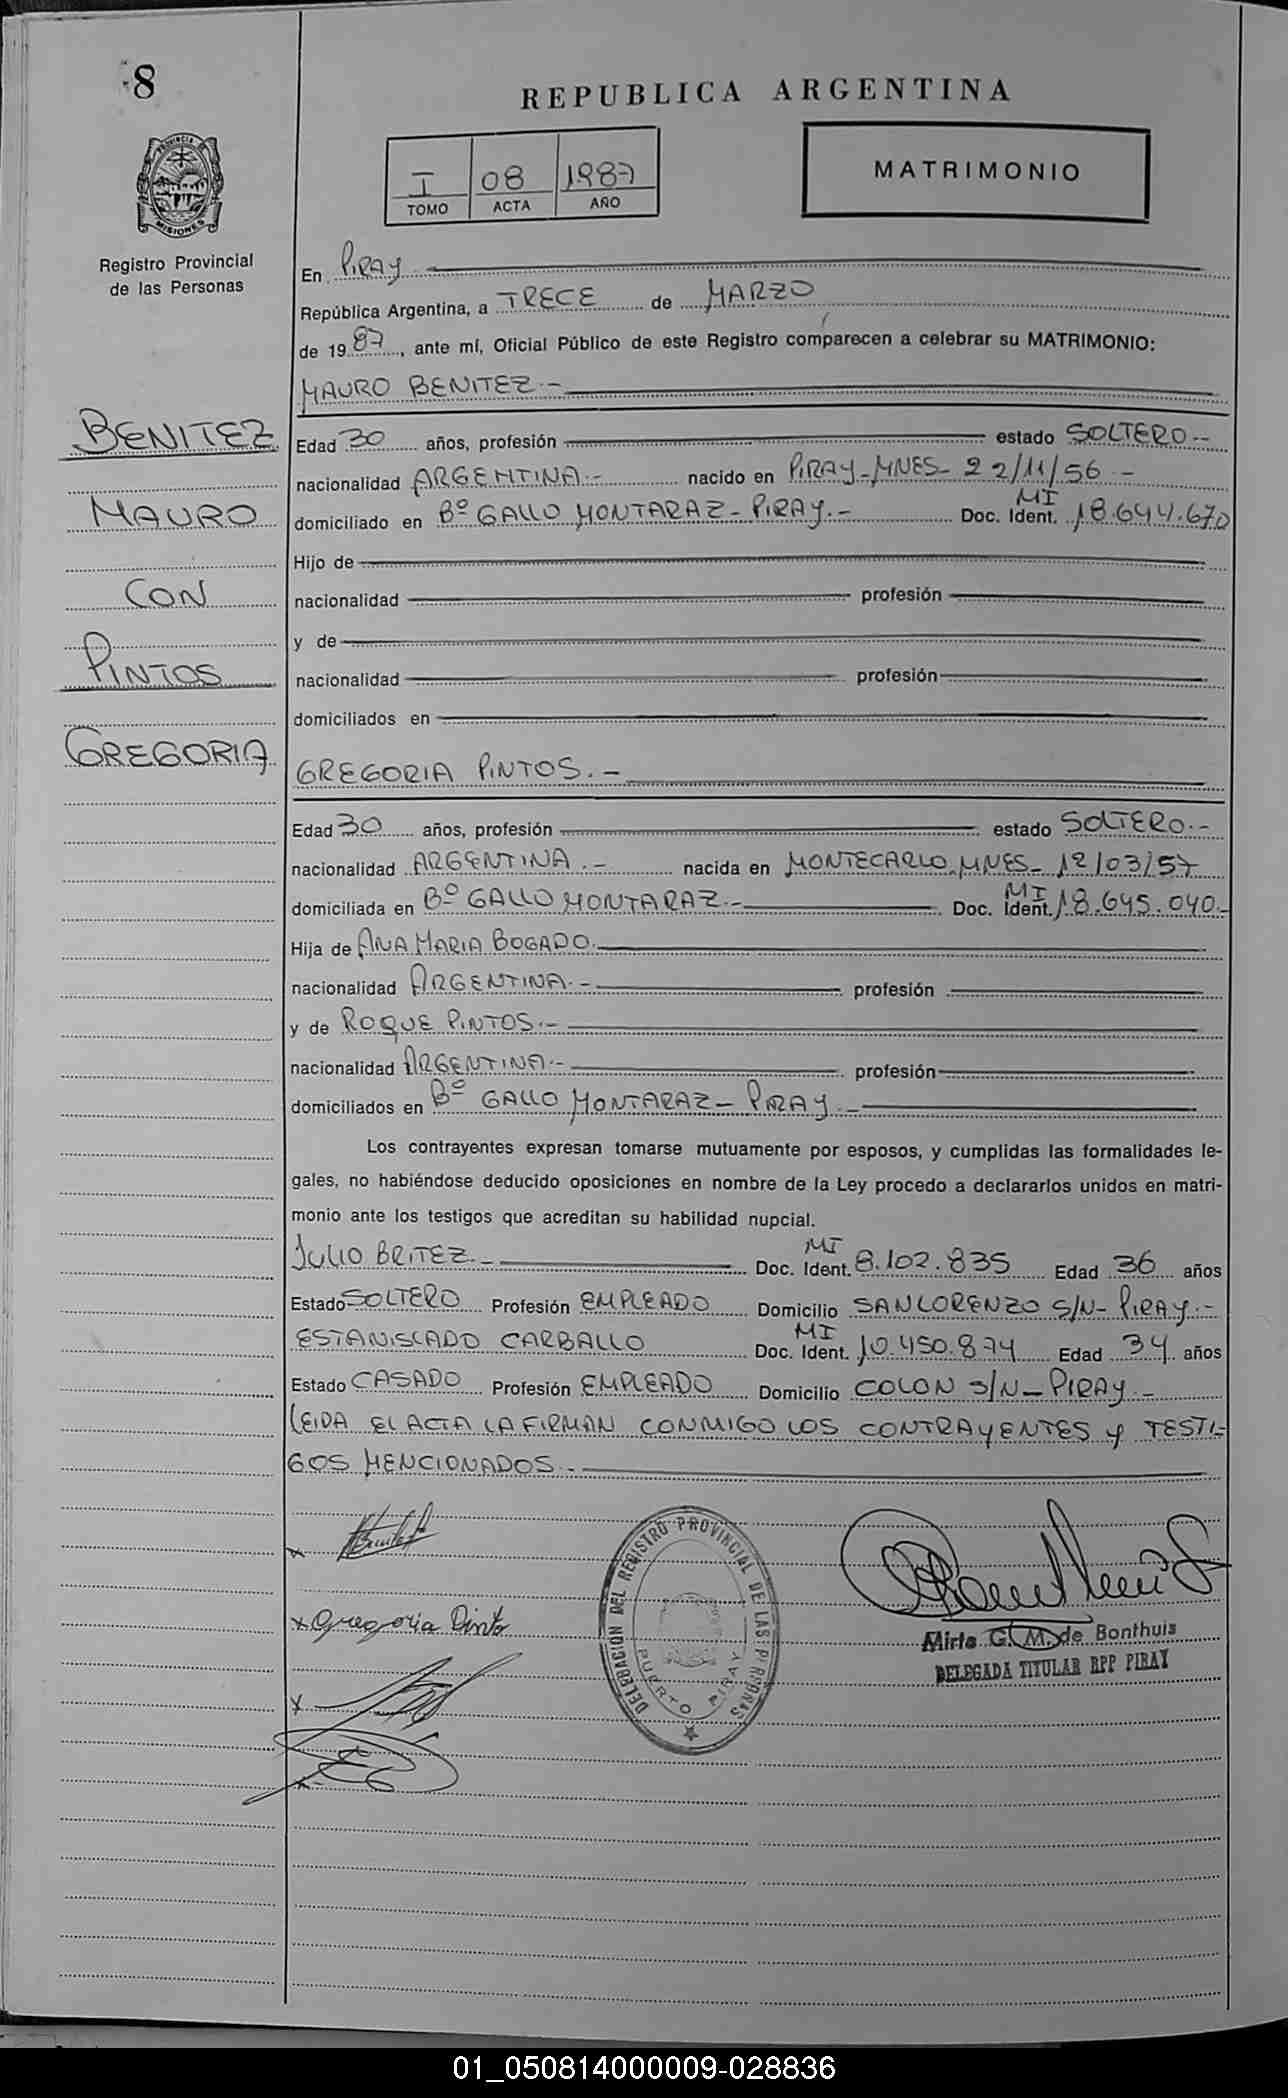 8
REPUBLICA ARGENTINA
I 08 1987
TOMO ACTA AÑO
MATRIMONIO
PROVINCIA DE MISIONES
Registro Provincial
de las Personas
En PIRAY
República Argentina, a TRECE de MARZO
de 1987, ante mí, Oficial Público de este Registro comparecen a celebrar su MATRIMONIO:
MAURO BENITEZ.-
BENITEZ
MAURO
CON
PINTOS
GREGORIA
Edad 30 años, profesión estado SOLTERO.-
nacionalidad ARGENTINA.- nacido en PIRAY-MNES- 22/11/56.-
domiciliado en Bº GALLO MONTARAZ- PIRAY.- Doc. Ident. MI 18.644.670
Hijo de
nacionalidad profesión
y de
nacionalidad profesión
domiciliados en
GREGORIA PINTOS.-
Edad 30 años, profesión estado SOLTERO.-
nacionalidad ARGENTINA.- nacida en MONTECARLO.MNES- 12/03/57
domiciliada en Bº GALLO MONTARAZ.- Doc. Ident. MI 18.645.040.-
Hija de ANA MARIA BOGADO.
nacionalidad ARGENTINA.- profesión
y de ROQUE PINTOS.-
nacionalidad ARGENTINA.- profesión
domiciliados en Bº GALLO MONTARAZ- PIRAY.-
Los contrayentes expresan tomarse mutuamente por esposos, y cumplidas las formalidades le-
gales, no habiéndose deducido oposiciones en nombre de la Ley procedo a declararlos unidos en matri-
monio ante los testigos que acreditan su habilidad nupcial.
JULIO BRITEZ.- Doc. Ident. MI 8.102.835 Edad 36 años
Estado SOLTERO Profesión EMPLEADO Domicilio SAN LORENZO S/N- PIRAY.-
ESTANISLADO CARBALLO Doc. Ident. MI 10.450.874 Edad 34 años
Estado CASADO Profesión EMPLEADO Domicilio COLON S/N- PIRAY.-
LEIDA EL ACTA LA FIRMAN CONMIGO LOS CONTRAYENTES y TESTI-
GOS MENCIONADOS.-
x Gregoria Pinto
DELEGACION DEL REGISTRO PROVINCIAL DE LAS PERSONAS
PUERTO PIRAY
Mirta G. M. de Bonthuis
DELEGADA TITULAR RPP PIRAY
01_050814000009-028836